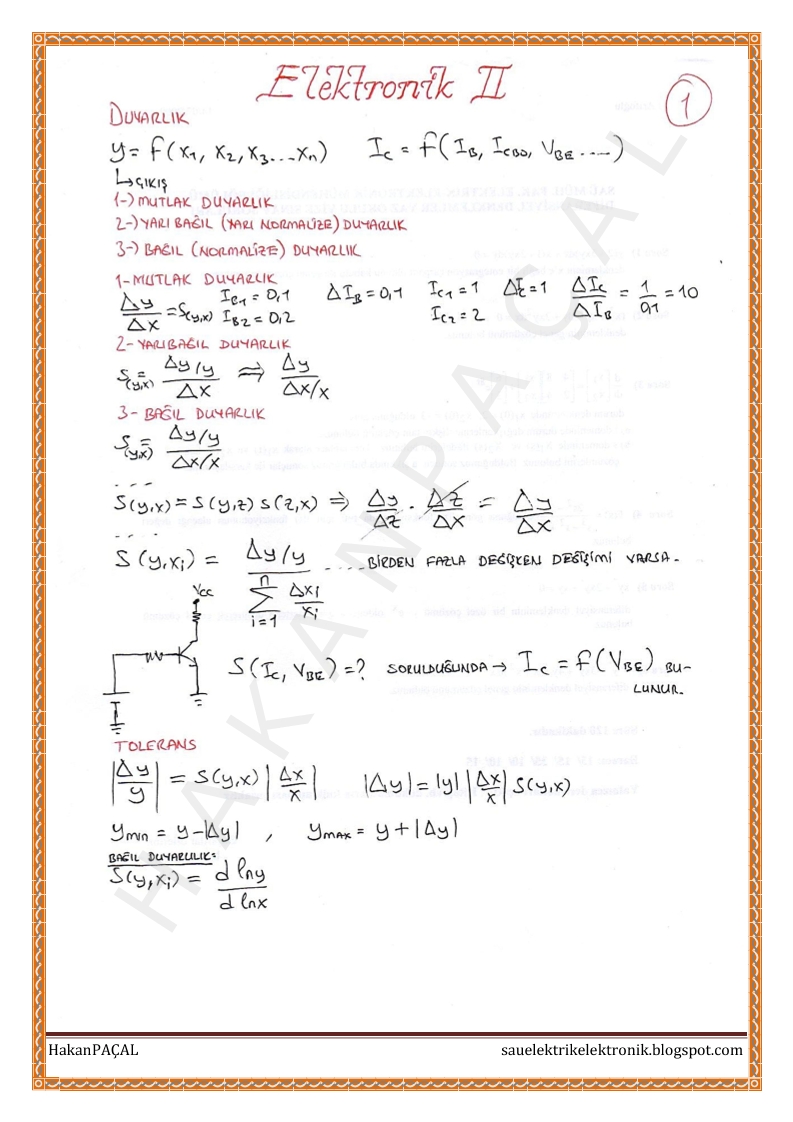 Elektronik II
1
DUYARLIK
y = f(x1, x2, x3...xn)   Ic = f(IB, ICBO, VBE .....)
↳ ÇIKIŞ
1-) MUTLAK DUYARLIK
2-) YARI BAĞIL (YARI NORMALİZE) DUYARLIK
3-) BAĞIL (NORMALİZE) DUYARLIK
1- MUTLAK DUYARLIK
Δy/Δx = S(y,x)   IB1 = 0,1   IB2 = 0,2   ΔIB = 0,1   IC1 = 1   IC2 = 2   ΔIc = 1   ΔIc/ΔIB = 1/0,1 = 10
2- YARI BAĞIL DUYARLIK
S(y,x) = (Δy/y)/Δx ⇒ Δy/(Δx/x)
3- BAĞIL DUYARLIK
S(y,x) = (Δy/y)/(Δx/x)
- - - -
S(y,x) = S(y,z) S(z,x) ⇒ Δy/Δz . Δz/Δx = Δy/Δx
- - - -
S(y,xi) = (Δy/y)/(n Σ i=1 Δxi/xi) ..... BİRDEN FAZLA DEĞİŞKEN DEĞİŞİMİ VARSA.
Vcc
S(Ic, VBE) = ? SORULDUĞUNDA → Ic = f(VBE) BU-
LUNUR.
TOLERANS
|Δy/y| = S(y,x) |Δx/x|   |Δy| = |y| |Δx/x| S(y,x)
yMIN = y - |Δy| ,   yMAX = y + |Δy|
BAĞIL DUYARLILIK:
S(y,xi) = d lny / d lnx
HAKAN PAÇAL
HakanPAÇAL   sauelektrikelektronik.blogspot.com